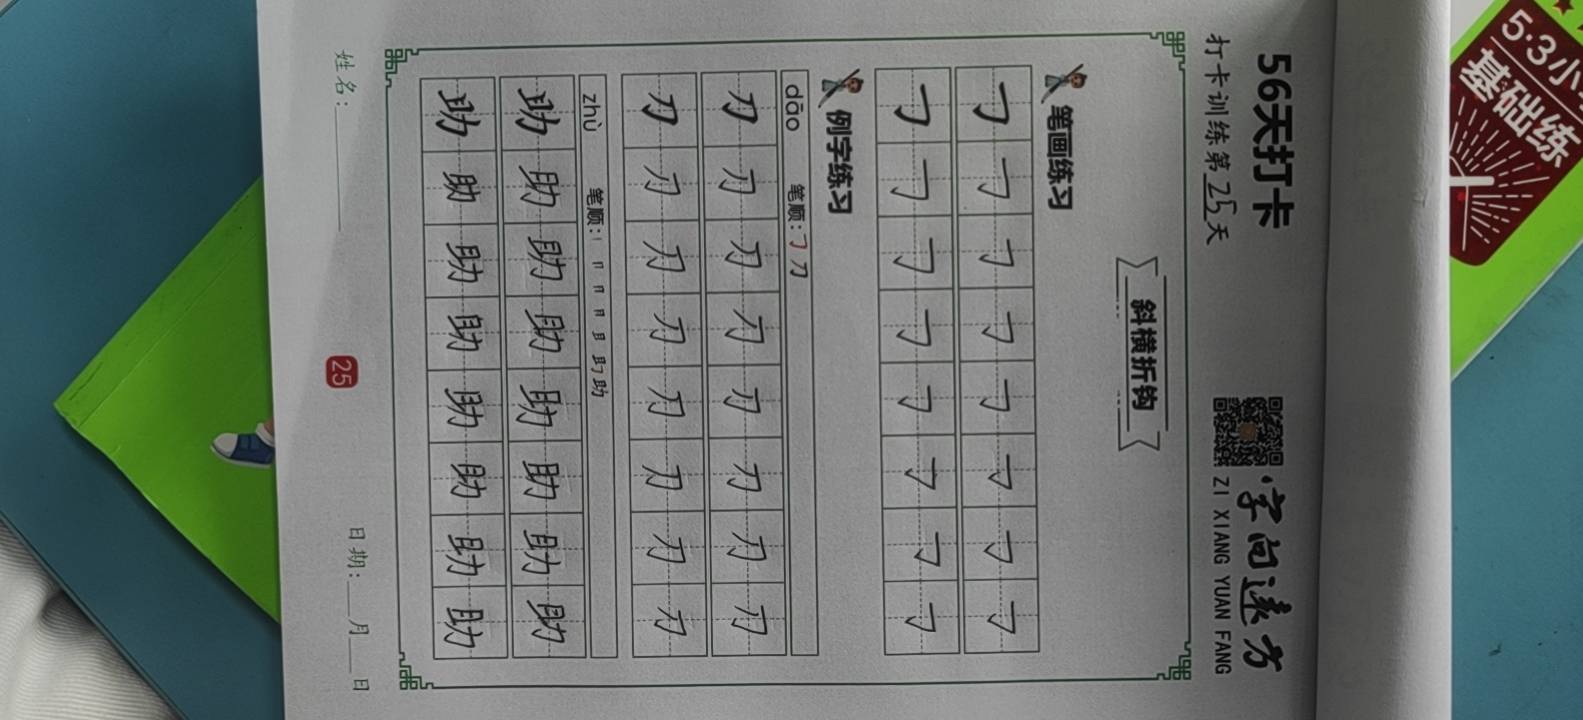 56天打卡 字向远方
打卡训练第25天 ZI XIANG YUAN FANG
斜横折钩
笔画练习
㇆ ㇆ ㇆ ㇆ ㇆ ㇆ ㇆ ㇆
㇆ ㇆ ㇆ ㇆ ㇆ ㇆ ㇆ ㇆
例字练习
dāo 笔顺:㇆ 刀
刀 刀 刀 刀 刀 刀 刀 刀
刀 刀 刀 刀 刀 刀 刀 刀
zhù 笔顺: 助
助 助 助 助 助 助 助 助
助 助 助 助 助 助 助 助
姓名: 日期: 月 日
25
5·3小
基础练